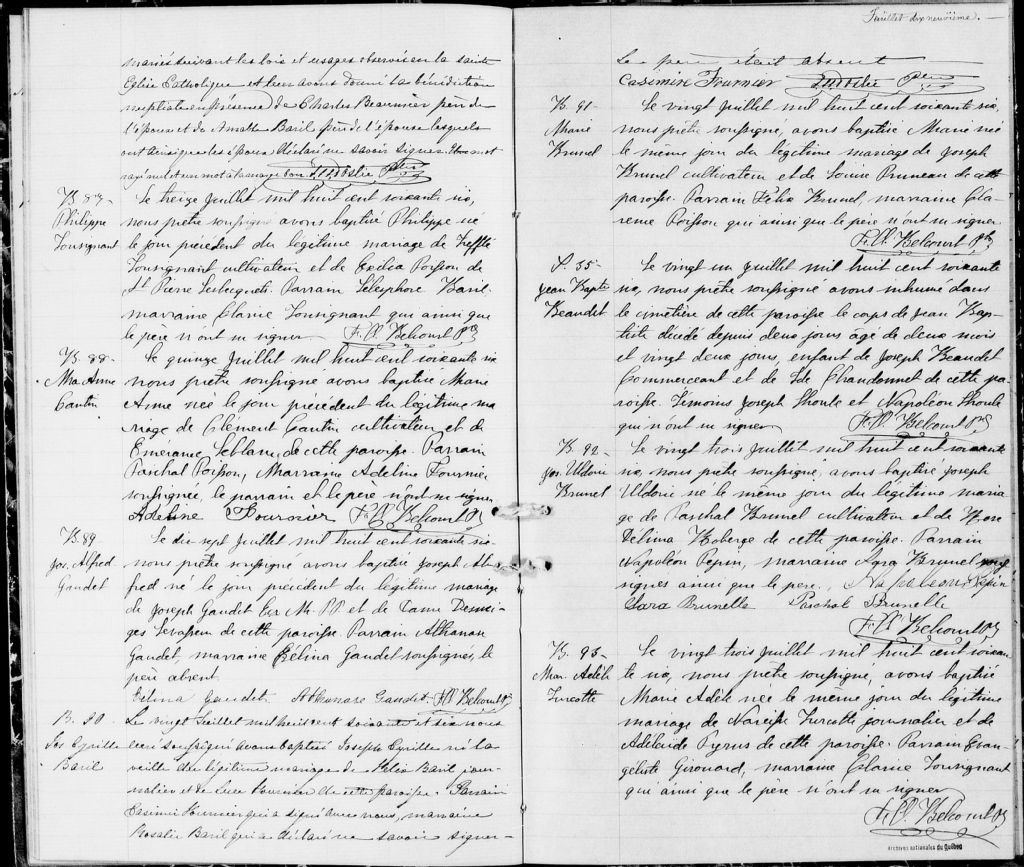 mariés suivant les lois et usages observés en la sainte
Eglise Catholique et leur avons donné la bénédiction
nuptiale en présence de Charles Beaumier père de
l'époux et de Baril père de l'épouse lesquels
ont ainsi que les époux déclaré ne savoir signer. mot
rayé nul et un mot à la marge bon Ptre
B. 87
Philippe
Tousignant
Le treize Juillet mil huit cent soixante six,
nous prêtre soussigné avons baptisé Philippe né
le jour précédent du légitime mariage de Trefflé
Tousignant cultivateur et de Exilia Poisson de
St Pierre les Becquets. Parrain Télesphore Baril
marraine Clarice Tousignant qui ainsi que
le père n'ont su signer
Fr. X. Belcourt Ptr
B. 88
Mie Anne
Cantin
Le quinze Juillet mil huit cent soixante six
nous prêtre soussigné avons baptisé Marie
Anne née le jour précédent du légitime ma
riage de Clément Cantin cultivateur et de
Emérance Leblanc de cette paroisse. Parrain
Paschal Poisson, Marraine Adeline Fournier
soussignée, le parrain et le père n'ont su signer
Adeline Fournier Fr. X. Belcourt Pt
B. 89
Jos. Alfred
Gaudet
Le dix sept Juillet mil huit cent soixante six
nous prêtre soussigné avons baptisé Joseph Al
fred né le jour précédent du légitime mariage
de Joseph Gaudet Ecr M. P. P. et de Dame Desnei-
ges Levasseur de cette paroisse Parrain Athanase
Gaudet, marraine Exélina Gaudet soussignés, le
père absent.
Exélina Gaudet Athanase Gaudet Fr. X. Belcourt Pt
B. 90
Jos Cyrille
Baril
Le vingt Juillet mil huit cent soixante et six nous
curé soussigné avons baptisé Joseph Cyrille né la
veille du légitime mariage de Félix Baril jour-
nalier et de Luce Fournier de cette paroisse. Parrain
Casimir Fournier qui a signé avec nous, marraine
Rosalie Baril qui a déclaré ne savoir signer-
Feuillet dix neuvième.
Le père était absent
Casimire Fournier Ptre
B. 91
Marie
Brunel
Le vingt Juillet mil huit cent soixante six,
nous prêtre soussigné, avons baptisé Marie née
le même jour du légitime mariage de Joseph
Brunel cultivateur et de Louise Pruneau de cette
paroisse. Parrain Félix Brunel, marraine Cla-
rence Poisson qui ainsi que le père n'ont su signer
Fr. X. Belcourt Ptr
S. 35
Jean Bapte
Beaudet
Le vingt un Juillet mil huit cent soixante
six, nous prêtre soussigné avons inhumé dans
le cimetière de cette paroisse le corps de Jean Bap-
tiste décédé depuis deux jours âgé de deux mois
et vingt deux jours, enfant de Joseph Beaudet
Commerçant et de Ide Chandonnet de cette pa-
roisse. Témoins Joseph Houle et Napoléon Houle
qui n'ont su signer
Fr. X. Belcourt Ptr
B. 92
Jos. Uldoric
Brunel
Le vingt trois Juillet mil huit cent soixante
six, nous prêtre soussigné, avons baptisé Joseph
Uldoric né le même jour du légitime maria
ge de Paschal Brunel cultivateur et de Rose
Délima Roberge de cette paroisse. Parrain
Napoléon Pepin, marraine Brunel
signés ainsi que le père. Napoléon Pepin
Clara Brunelle Paschal Brunelle
Fr. X. Belcourt Pt
B. 93
Mie Adèle
Turcotte
Le vingt trois Juillet mil huit cent soixan
te six, nous prêtre soussigné, avons baptisé
Marie Adèle née le même jour du légitime
mariage de Narcisse Turcotte journalier et de
Adélaïde Pyrus de cette paroisse. Parrain Evan-
géliste Girouard, marraine Clarice Tousignant
qui ainsi que le père n'ont su signer
Fr. X. Belcourt Pt
Archives nationales du Québec